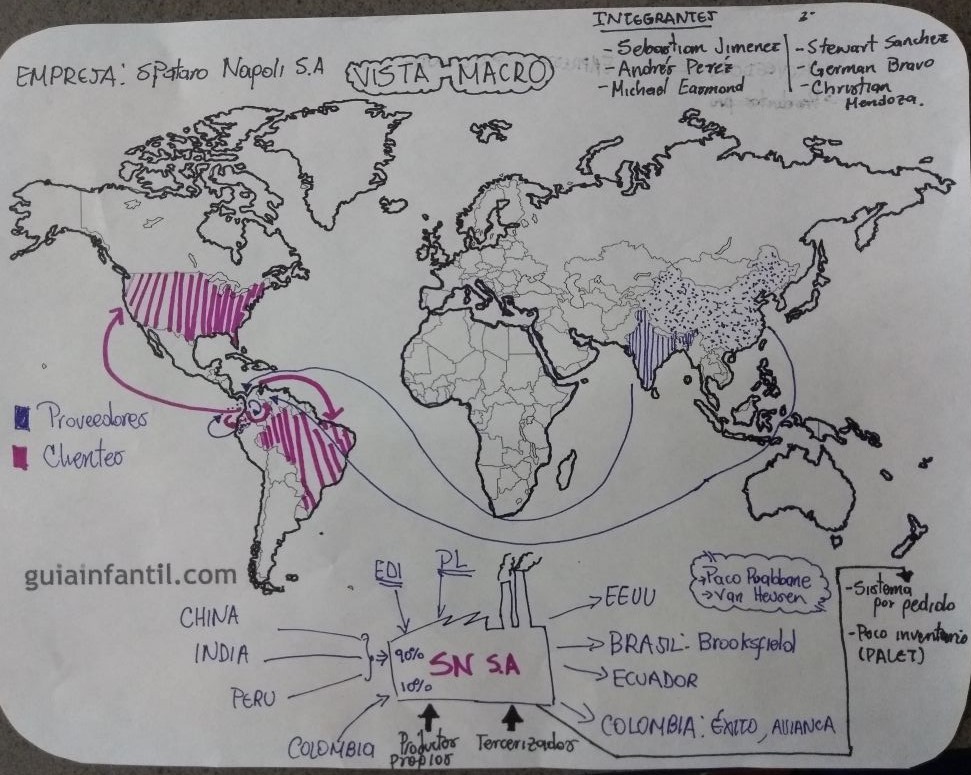 INTEGRANTES
- Sebastian Jimenez
- Andrés Perez
- Michael Eamond
2-
- Stewart Sanchez
- German Bravo
- Christian
Mendoza.
EMPRESA: Spataro Napoli S.A
VISTA MACRO
Proveedores
Clientes
guiainfantil.com
CHINA
INDIA
PERU
COLOMBIA
EDI
PL
90%
10%
SN S.A
Productos
Propios
Tercerizados
EEUU
BRASIL: Brooksfield
ECUADOR
COLOMBIA: ÉXITO, AVIANCA
→ Paco Rabbane
→ Van Heusen
- Sistema
por pedido
- Poco inventario
(PALET)